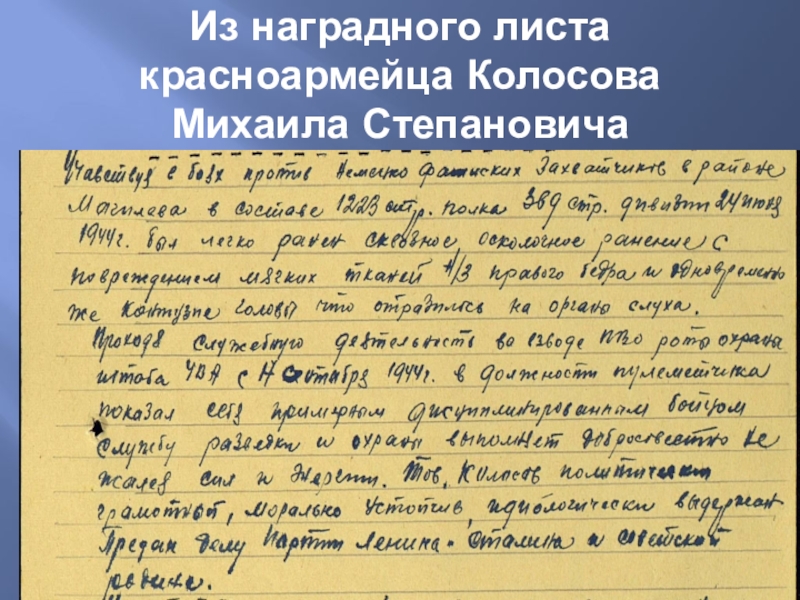 Из наградного листа
красноармейца Колосова
Михаила Степановича
Учавствуя в боях против Немецко фашиских Захватчиков в районе
Магилева в составе 1223 стр. полка 369 стр. дивизии 24 июня
1944г. был легко ранен сквозное осколочное ранение с
повреждением мягких тканей н/3 правого бедра и одновременно
же контузие головы что отразилось на органы слуха.
Проходя служебную деятельность во взводе ПВО роты охраны
штаба с 1944г. в должности пулеметчика
показал себя примерным дисциплинированным бойцом
службу разведки и охраны выполняет добросовестно не
жалея сил и энергии. Тов. Колосов политически
грамотный, морально устойчив, идиологически выдержан
Предан делу Партии Ленина-Сталина и советской
родине.